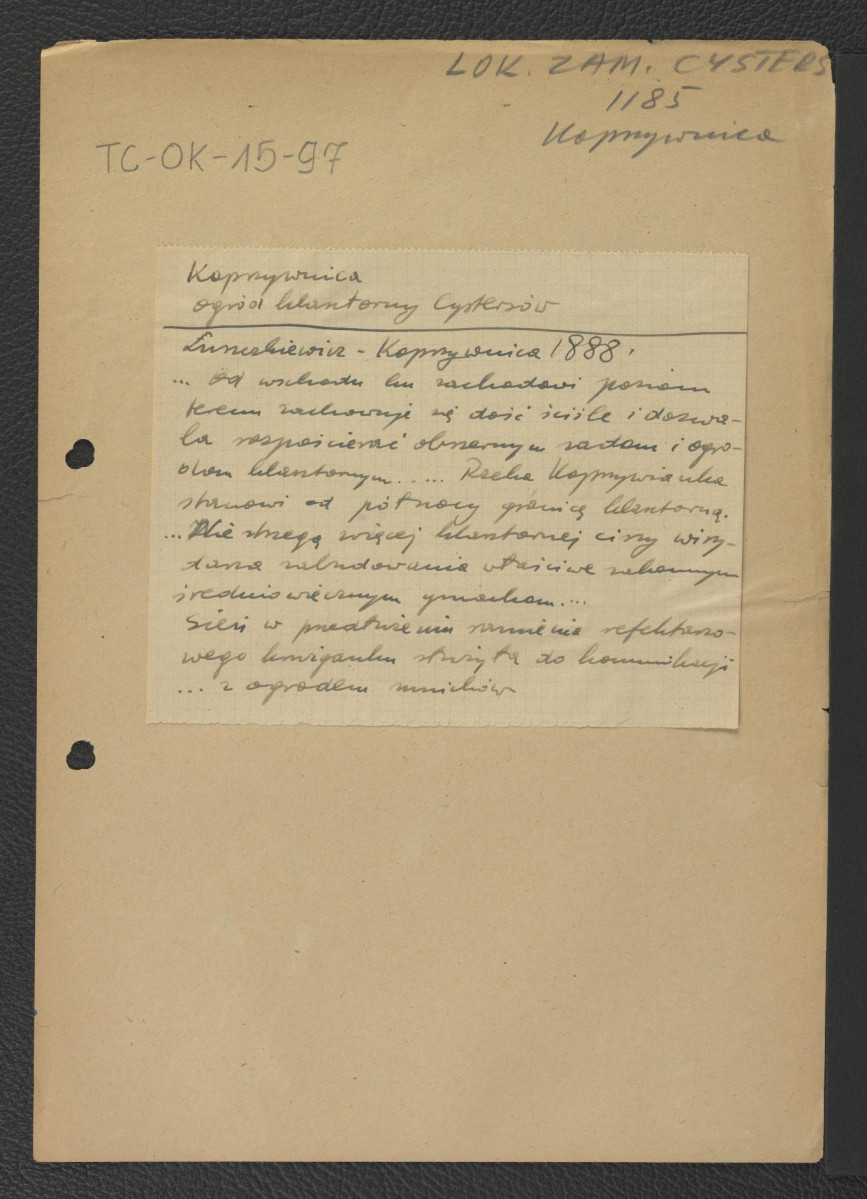 LOK. ZAM. CYSTERS
1185
Koprzywnica
TC-OK-15-97
Koprzywnica
ogród klasztorny Cystersów
Łuszczkiewicz - Koprzywnica 1888.
... od wschodu ku zachodowi poziom
terenu zachowuje się dość ściśle i dozwa-
la rozpościerać obszernym sadom i ogro-
dom klasztornym..... Rzeka Koprzywianka
stanowi od północy granicę klasztorną.
... Nie strzegą więcej klasztornej ciszy
zabudowania właściwe zakonnym
średniowiecznym gmachom....
Sień w przedłużeniu ramienia refektarzo-
wego krużganku służyła do komunikacji
... z ogrodem mnichów